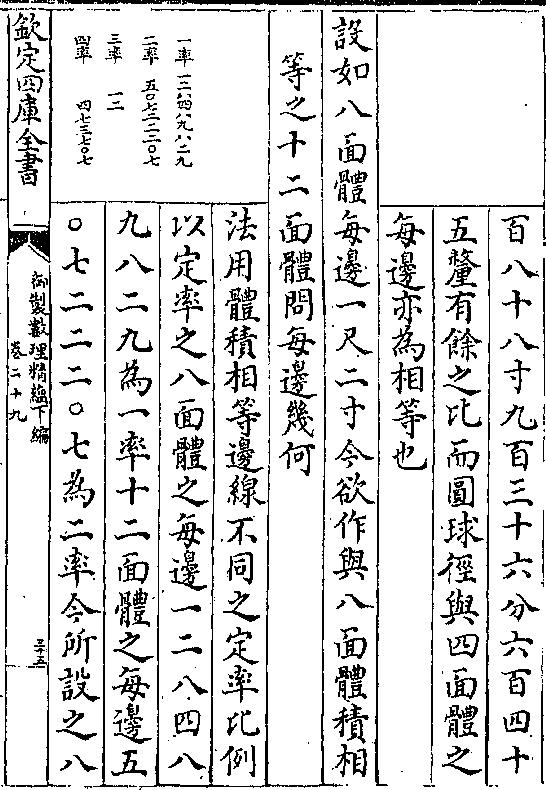 百八十八寸九百三十六分六百四十
五釐有餘之比而圓球徑與四面體之
每邊亦為相等也
設如八面體每邊一尺二寸今欲作與八面體積相
等之十二面體問每邊幾何
法用體積相等邊線不同之定率比例
以定率之八面體之每邊一二八四八
九八二九為一率十二面體之每邊五
〇七二二二〇七為二率今所設之八
一率 一二八四八九八二九
二率 五〇七二二二〇七
三率 一二
四率 四七三七〇七
欽定四庫全書
御製數理精蘊下編
卷二十九